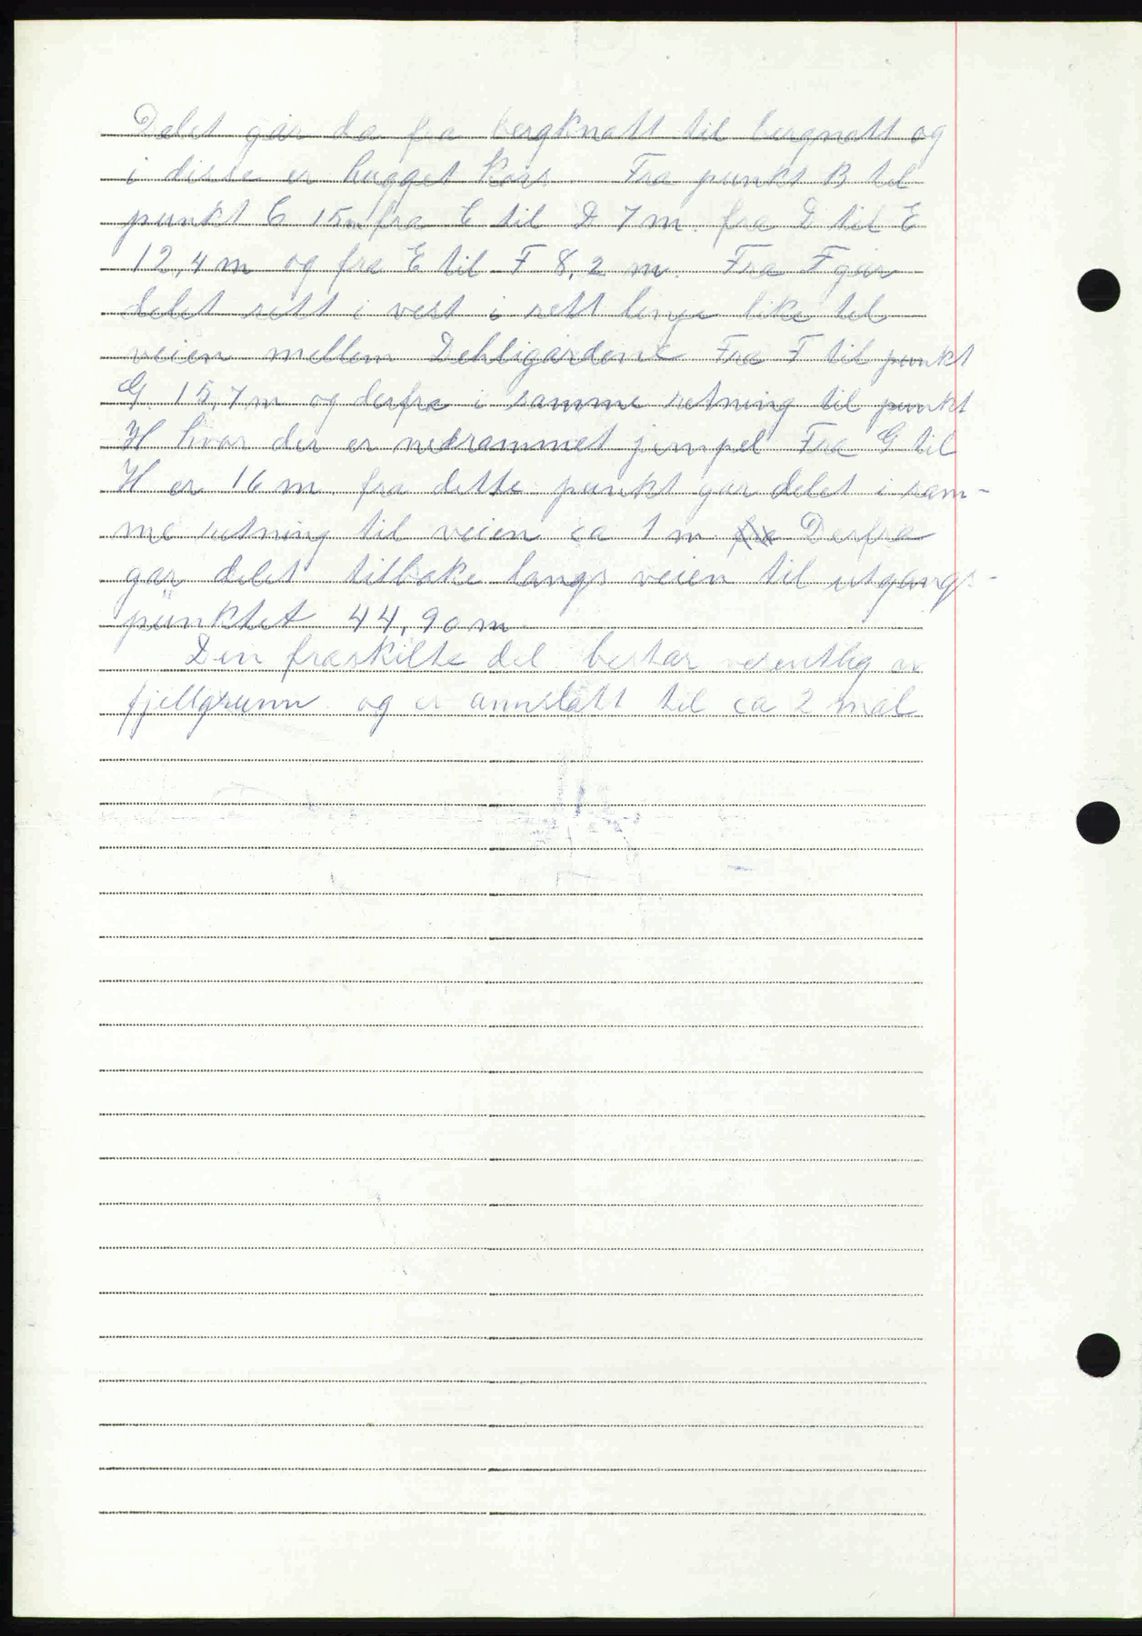 Delet går da fra bergknatt til bergnatt og
i disse er hugget kors. Fra punkt B til
punkt C 15m fra C til D 7 m. fra D til E
12,4 m og fra E til F 8,2 m. Fra F går
delet rett i vest i rett linje like til
veien mellem Dehligårdene Fra F til punkt
G. 15,7 m og derfra i samme retning til punkt
H hvor der er nedrammet jernpel Fra G til
H er 16 m. fra dette punkt går delet i sam-
me retning til veien ca 1 m Derfra
går delet tilbake langs veien til utgangs-
punktet 44,90 m
Den fraskilte del består vesentlig av
fjellgrunn og er annslått til ca 2 mål